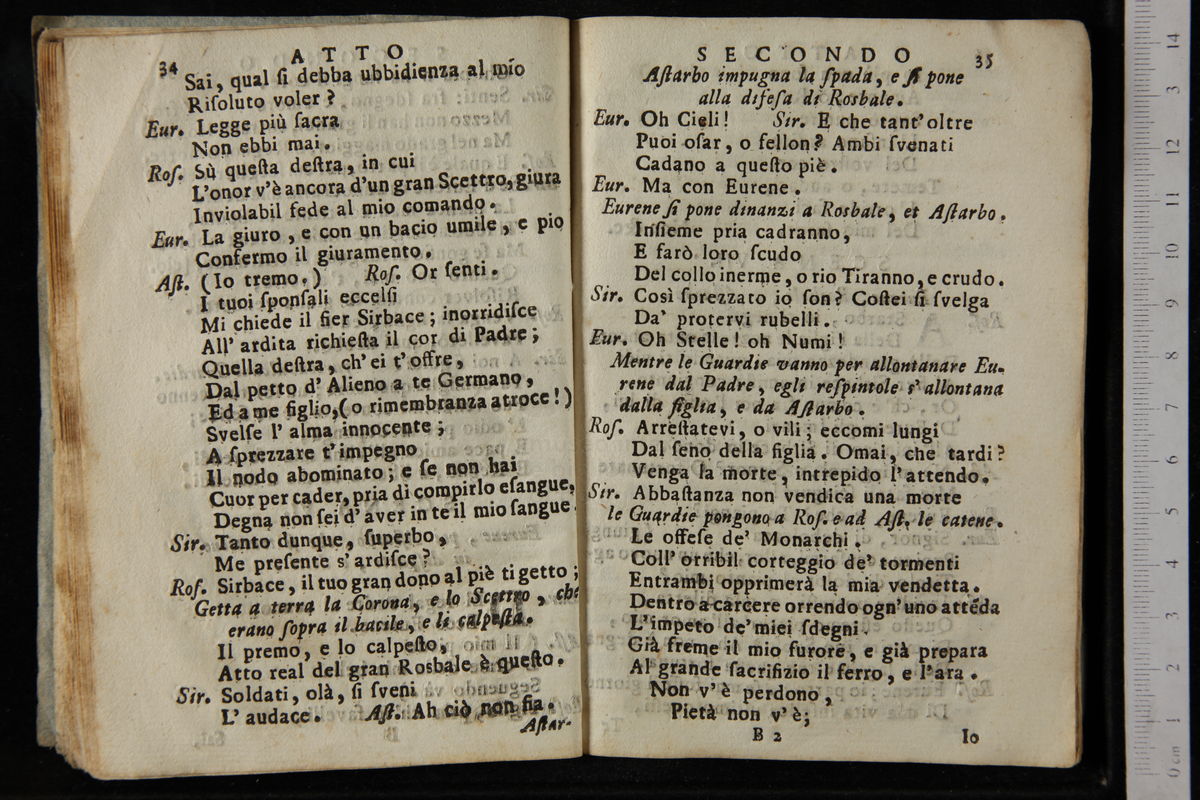 34 ATTO
Sai, qual ſi debba ubbidienza al mio
Riſoluto voler?
Eur. Legge più ſacra
Non ebbi mai.
Roſ. Sù queſta deſtra, in cui
L'onor v'è ancora d'un gran Scettro, giura
Inviolabil fede al mio comando.
Eur. La giuro, e con un bacio umile, e pio
Confermo il giuramento.
Aſt. (Io tremo.) Roſ. Or ſenti.
I tuoi ſponſali eccelſi
Mi chiede il fier Sirbace; inorridiſce
All' ardita richieſta il cor di Padre;
Quella deſtra, ch' ei t' offre,
Dal petto d' Alieno a te Germano,
Ed a me figlio, (o rimembranza atroce!)
Svelſe l' alma innocente;
A ſprezzare t' impegno
Il nodo abominato; e ſe non hai
Cuor per cader, pria di compirlo eſangue,
Degna non ſei d' aver in te il mio ſangue.
Sir. Tanto dunque, ſuperbo,
Me preſente s' ardiſce?
Roſ. Sirbace, il tuo gran dono al piè ti getto;
Getta a terra la Corona, e lo Scettro, che
erano ſopra il bacile, e li calpeſta.
Il premo, e lo calpeſto,
Atto real del gran Rosbale è queſto.
Sir. Soldati, olà, ſi ſveni
L' audace. Aſt. Ah ciò non fia.
Aſtar-
SECONDO 35
Aſtarbo impugna la ſpada, e ſi pone
alla difeſa di Rosbale.
Eur. Oh Cieli! Sir. E che tant' oltre
Puoi oſar, o fellon? Ambi ſvenati
Cadano a queſto piè.
Eur. Ma con Eurene.
Eurene ſi pone dinanzi a Rosbale, et Aſtarbo.
Inſieme pria cadranno,
E farò loro ſcudo
Del collo inerme, o rio Tiranno, e crudo.
Sir. Così ſprezzato io ſon? Coſtei ſi ſvelga
Da' protervi rubelli.
Eur. Oh Stelle! oh Numi!
Mentre le Guardie vanno per allontanare Eu-
rene dal Padre, egli reſpintole s' allontana
dalla figlia, e da Aſtarbo.
Roſ. Arreſtatevi, o vili; eccomi lungi
Dal ſeno della figlia. Omai, che tardi?
Venga la morte, intrepido l' attendo.
Sir. Abbaſtanza non vendica una morte
le Guardie pongono a Roſ. e ad Aſt. le catene.
Le offeſe de' Monarchi.
Coll' orribil corteggio de' tormenti
Entrambi opprimerà la mia vendetta.
Dentro a carcere orrendo ogn' uno attẽda
L' impeto de' miei ſdegni.
Già freme il mio furore, e già prepara
Al grande ſacrifizio il ferro, e l'ara.
Non v' è perdono,
Pietà non v' è;
B 2 Io